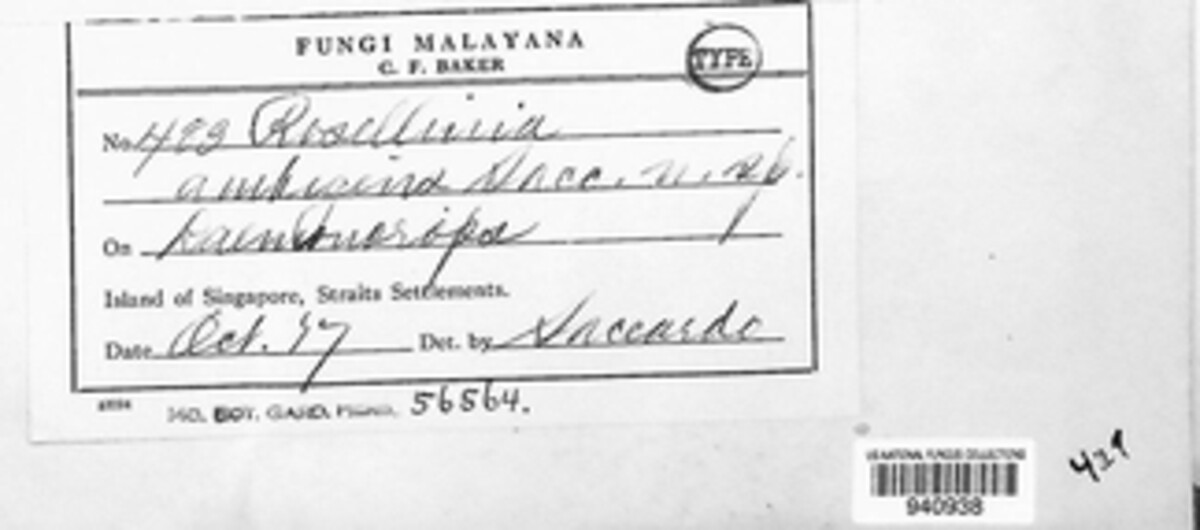 FUNGI MALAYANA
C. F. BAKER
TYPE
No. 493 Rosellinia
ambigena Sacc. n. sp.
On Daemonorops
Island of Singapore, Straits Settlements.
Date Oct. 17 Det. by Saccardo
MO. BOT. GARD. HERB. 56564.
US NATIONAL FUNGUS COLLECTIONS
940938